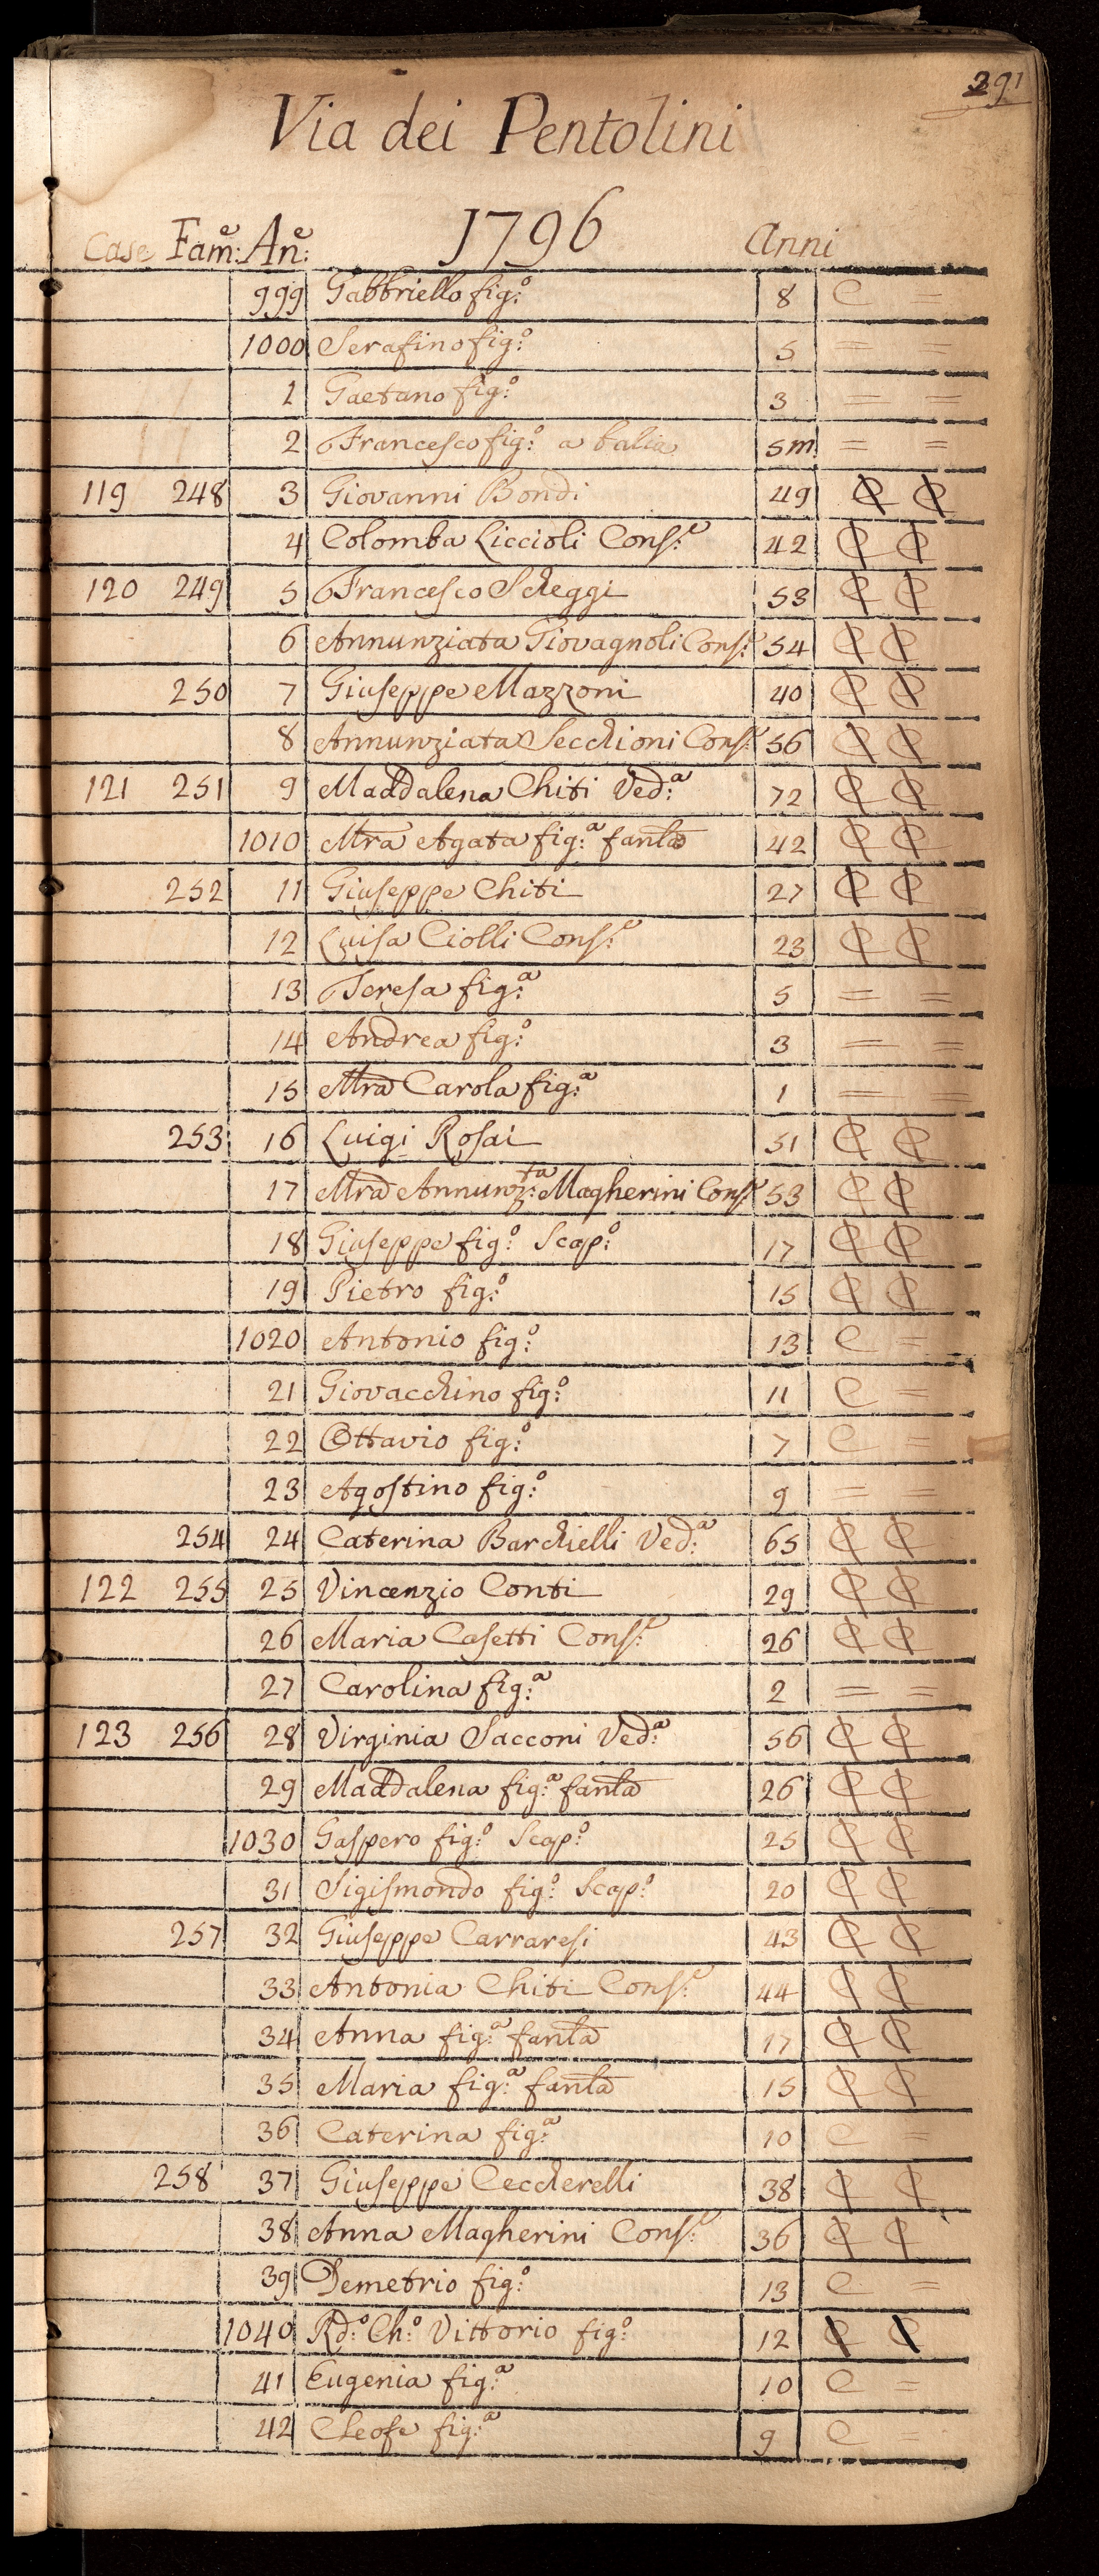 291
Via dei Pentolini
Case Fam:e An:e 1796 Anni
999 Gabbriello fig:o 8 C =
1000 Serafino fig:o 5 = =
1 Gaetano fig:o 3 = =
2 Francesco fig:o a balia 5m = =
119 248 3 Giovanni Bondi 49 C C
4 Colomba Liccioli Cons:e 42 C C
120 249 5 Francesco Scheggi 53 C C
6 Annunziata Giovagnoli Cons:e 54 C C
250 7 Giuseppe Mazzoni 40 C C
8 Annunziata Secchioni Cons:e 56 C C
121 251 9 Maddalena Chiti Ved:a 72 C C
1010 Mra Agata fig:a fanla 42 C C
252 11 Giuseppe Chiti 27 C C
12 Luisa Ciolli Cons:e 23 C C
13 Teresa fig:a 5 = =
14 Andrea fig:o 3 = =
15 Mra Carola fig:a 1 = =
253 16 Luigi Rosai 51 C C
17 Mra Annunz:ta Magherini Cons:e 53 C C
18 Giuseppe fig:o Scap:o 17 C C
19 Pietro fig:o 15 C C
1020 Antonio fig:o 13 C =
21 Giovacchino fig:o 11 C =
22 Ottavio fig:o 7 C =
23 Agostino fig:o 9 = =
254 24 Caterina Barchielli Ved:a 65 C C
122 255 25 Vincenzio Conti 29 C C
26 Maria Casetti Cons:e 26 C C
27 Carolina fig:a 2 = =
123 256 28 Virginia Sacconi Ved:a 56 C C
29 Maddalena fig:a fanla 26 C C
1030 Gaspero fig:o Scap:o 25 C C
31 Sigismondo fig:o Scap:o 20 C C
257 32 Giuseppe Carraresi 43 C C
33 Antonia Chiti Cons:e 44 C C
34 Anna fig:a fanla 17 C C
35 Maria fig:a fanla 15 C C
36 Caterina fig:a 10 C =
258 37 Giuseppe Ceccherelli 38 C C
38 Anna Magherini Cons:e 36 C C
39 Demetrio fig:o 13 C =
1040 Rd:o Ch:o Vittorio fig:o 12 C C
41 Eugenia fig:a 10 C =
42 Cleofe fig:a 9 C =